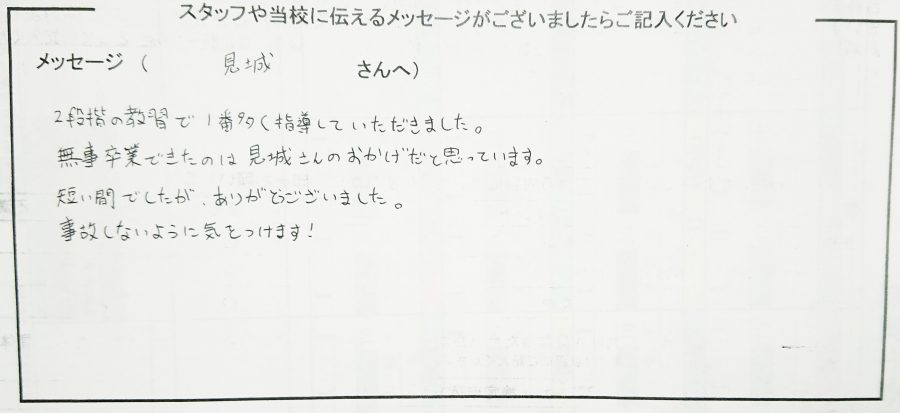 スタッフや当校に伝えるメッセージがございましたらご記入ください
メッセージ ( 見城 さんへ)
2段階の教習で1番多く指導していただきました。
無事卒業できたのは見城さんのおかげだと思っています。
短い間でしたが、ありがとうございました。
事故しないように気をつけます!